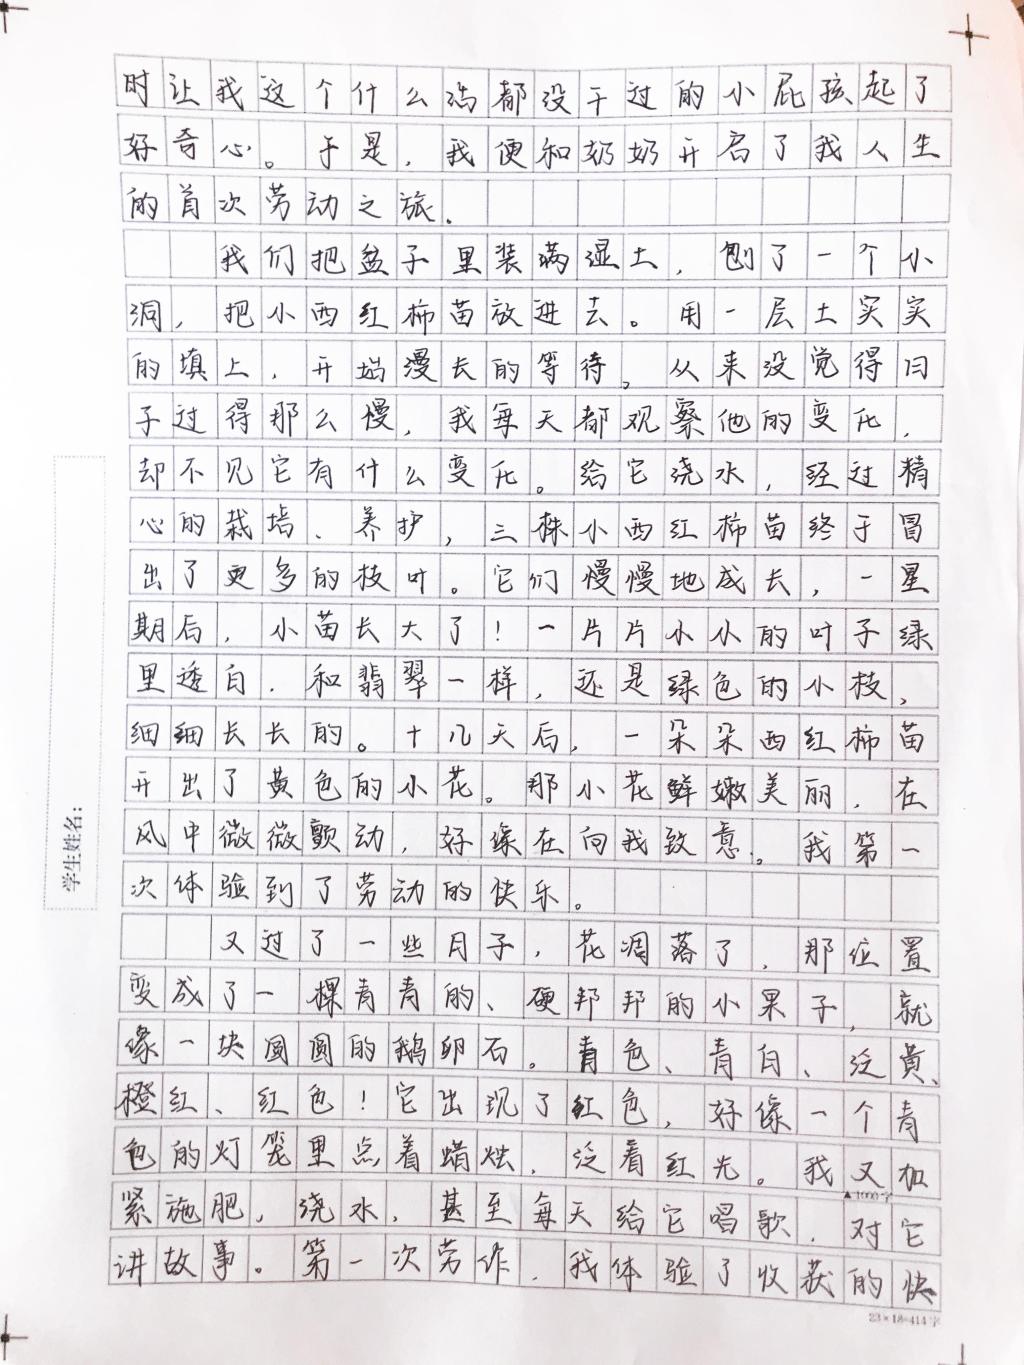 时让我这个什么活都没干过的小屁孩起了
好奇心。于是，我便和奶奶开启了我人生
的首次劳动之旅.
我们把盆子里装满湿土，刨了一个小
洞，把小西红柿苗放进去。用一层土实实
的填上，开始漫长的等待。从来没觉得日
子过得那么慢，我每天都观察他的变化，
却不见它有什么变化。给它浇水，经过精
心的栽培、养护，三株小西红柿苗终于冒
出了更多的枝叶。它们慢慢地成长，一星
期后，小苗长大了！一片片小小的叶子绿
里透白，和翡翠一样，还是绿色的小枝，
细细长长的。十几天后，一朵朵西红柿苗
开出了黄色的小花。那小花鲜嫩美丽，在
风中微微颤动，好像在向我致意。我第一
次体验到了劳动的快乐。
又过了一些日子，花凋落了，那位置
变成了一棵青青的、硬邦邦的小果子，就
像一块圆圆的鹅卵石。青色、青白、泛黄、
橙红、红色！它出现了红色，好像一个青
色的灯笼里点着蜡烛，泛着红光。我又加
▲1000字
紧施肥，浇水，甚至每天给它唱歌，对它
讲故事。第一次劳作，我体验了收获的快
23×18=414字
学生姓名：